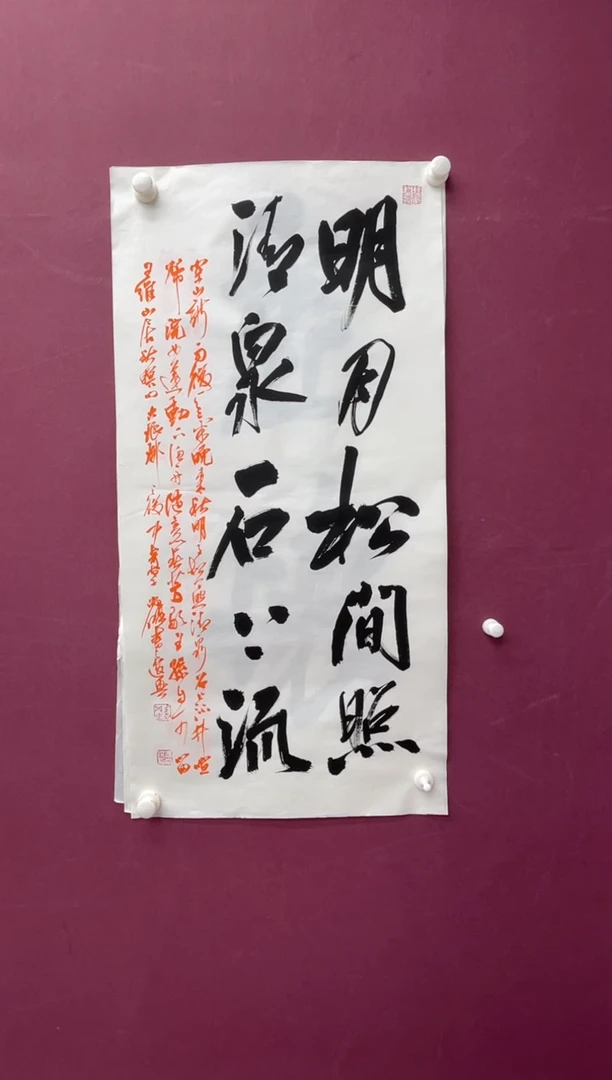 明月松間照
清泉石上流
空山新雨後天氣晚來秋明月松間照清泉石上流竹喧
歸浣女蓮動下漁舟隨意春芳歇王孫自可留
王維山居秋暝